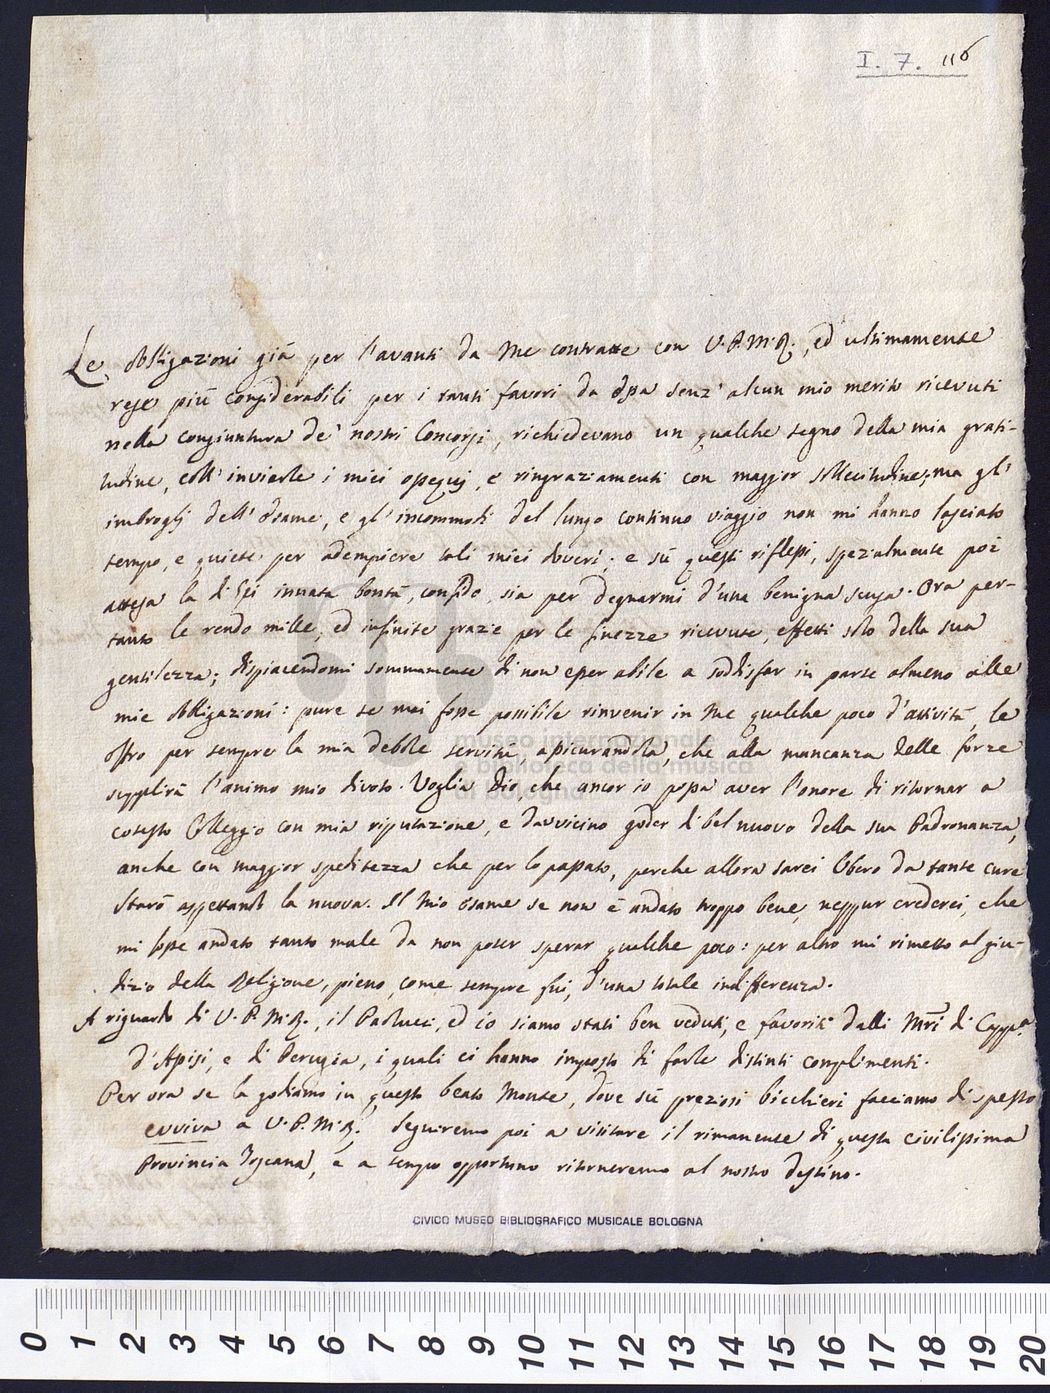 I. 7. 116
Le obbligazioni già per l'avanti da me contratte con V.P.M.R., ed ultimamente
rese più considerabili per i tanti favori da essa senz'alcun mio merito ricevuti
nella congiuntura de' nostri Concorsi, richiedevano un qualche segno della mia grati-
tudine, coll'inviarle i miei ossequj, e ringraziamenti con maggior sollecitudine; ma gl'
imbrogli dell'Esame, e gl'incommodi del lungo continuo viaggio non mi hanno lasciato
tempo, e quiete per adempiere tali miei doveri; e sù questi riflessi, spezialmente poi
attesa la di Lei innata bontà, confido, sia per degnarmi d'una benigna scusa. Ora per-
tanto le rendo mille, ed infinite grazie per le finezze ricevute, effetti solo della sua
gentilezza; dispiacendomi sommamente di non esser abile a soddisfar in parte almeno alle
mie obbligazioni: pure se mai fosse possibile rinvenir in me qualche poco d'attività, le
offro per sempre la mia debole servitù, assicurandola, che alla mancanza delle forze
supplirà l'animo mio divoto. Voglia Dio, che ancor io possa aver l'onore di ritornar a
cotesto Colleggio con mia riputazione, e davvicino goder di bel nuovo della sua Padronanza,
anche con maggior speditezza che per lo passato, perche allora sarei libero da tante cure
Starò aspettando la nuova. Il mio Esame se non è andato troppo bene, neppur crederei, che
mi fosse andato tanto male da non poter sperar qualche poco: per altro mi rimetto al giu-
dizio della Religione, pieno, come sempre fui, d'una totale indifferenza.
A riguardo di V.P.M.R., il Paolucci, ed io siamo stati ben veduti, e favoriti dalli Mri di Capp.a
d'Assisi, e di Perugia, i quali ci hanno imposto di farle distinti complimenti.
Per ora se la godiamo in questo beato Monte, dove sù preziosi bicchieri facciamo di spesso
evviva a V.P.M.R., Seguiremo poi a visitare il rimanente di questa civilissima
Provincia Toscana, e a tempo opportuno ritorneremo al nostro destino.
CIVICO MUSEO BIBLIOGRAFICO MUSICALE BOLOGNA
museo internazionale
e biblioteca della musica
di bologna
0 1 2 3 4 5 6 7 8 9 10 11 12 13 14 15 16 17 18 19 20